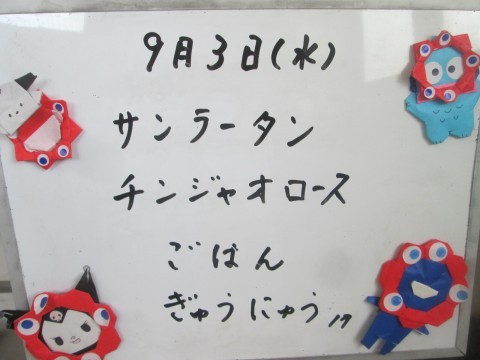 9月3日(水)
サンラータン
チンジャオロース
ごはん
ぎゅうにゅう